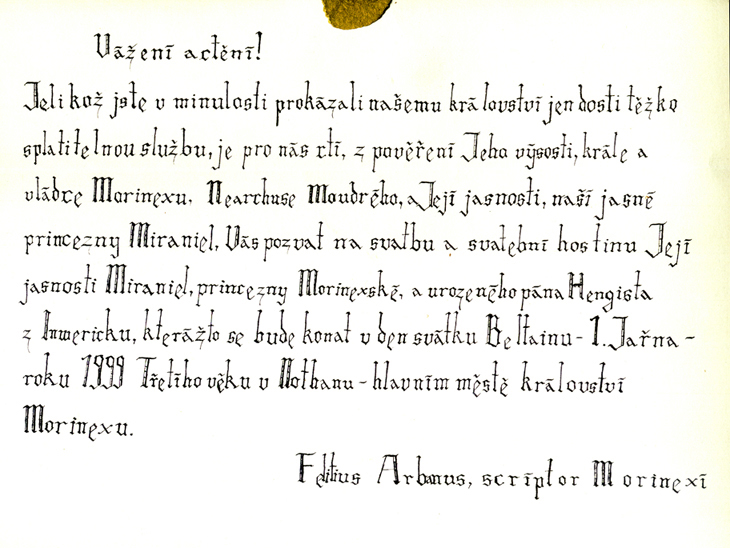 Vážení a ctění!
Jelikož jste v minulosti prokázali našemu království jen dosti těžko
splatitelnou službu, je pro nás ctí, z pověření Jeho výsosti, krále a
vládce Morinexu, Nearchuse Moudrého, a Její jasnosti, naší jasné
princezny Miraniel, Vás pozvat na svatbu a svatební hostinu Její
jasnosti Miraniel, princezny Morinexské, a urozeného pána Hengista
z Inwericku, kterážto se bude konat v den svátku Beltainu - 1. Jařna -
roku 1999 Třetího věku v Nothanu - hlavním městě království
Morinexu.
Felitius Arbanus, scriptor Morinexi